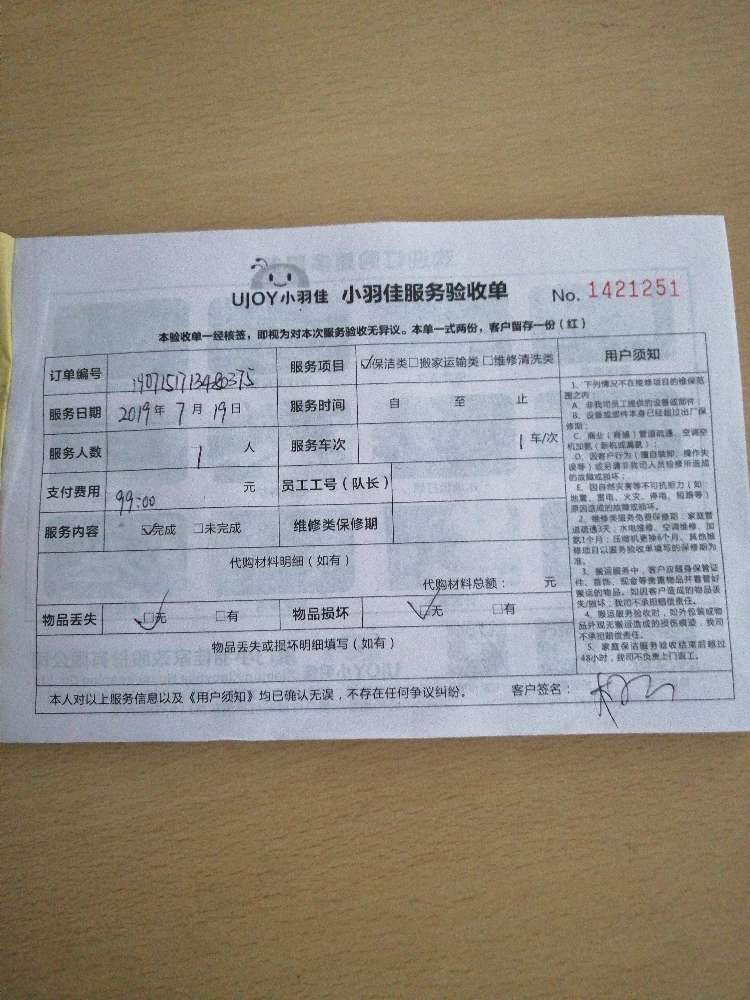 UJOY小羽佳 小羽佳服务验收单 No. 1421251
本验收单一经核签，即视为对本次服务验收无异议。本单一式两份，客户留存一份（红）
订单编号 服务项目 ☑保洁类□搬家运输类□维修清洗类
服务日期 2019年7月19日 服务时间 自 至 止
服务人数 1 人 服务车次 1 车/次
支付费用 99:00 元 员工工号（队长）
服务内容 ☑完成 □未完成 维修类保修期
代购材料明细（如有）
代购材料总额： 元
物品丢失 ☑无 □有 物品损坏 ☑无 □有
物品丢失或损坏明细填写（如有）
本人对以上服务信息以及《用户须知》均已确认无误，不存在任何争议纠纷。 客户签名：
用户须知
1、下列情况不在维修项目的维保范
围之内
A、非我司员工提供的设备或部件；
B、设备或部件本身已经超过出厂保
修期；
C、商业（商铺）管道疏通、空调空
机加氨（新机或漏氨）；
D、因客户行为（擅自装卸、操作失
误等）或另请非我司人员检修所造成
的故障或损坏；
E、因自然灾害等不可抗原力（如
地震、雷电、火灾、停电、短路等）
原因造成的故障或损坏。
2、维修类服务免费保修期：家庭管
道疏通3天，水电维修、空调维修、加
氨1个月；压缩机更换6个月，其他维
修项目以服务验收单填写的保修期为
准。
3、搬运服务中，客户应随身保管证
件、首饰、现金等贵重物品并看管好
搬运的物品。如因客户造成的物品丢
失/损坏，我司不承担赔偿责任。
4、搬运服务验收时，如外包装或物
品外观无搬运造成的损伤痕迹，我司
不承担赔偿责任。
5、家庭保洁服务验收结束后超过
48小时，我司不负责上门返工。